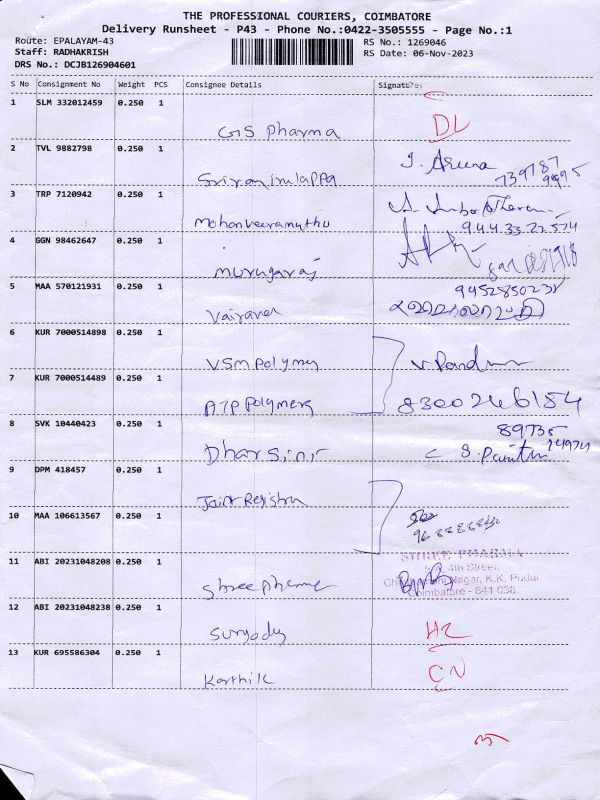 THE PROFESSIONAL COURIERS, COIMBATORE
Delivery Runsheet - P43 - Phone No.:0422-3505555 - Page No.:1
Route: EPALAYAM-43
RS No.: 1269046
Staff: RADHAKRISH
RS Date: 06-Nov-2023
DRS No.: DCJB126904601
S No Consignment No Weight PCS Consignee Details Signature
1 SLM 332012459 0.250 1
GS Pharma DL
2 TVL 9882798 0.250 1
3 TRP 7120942 0.250 1
Mohanveeramuthu
4 GGN 98462647 0.250 1
Murugaraj
5 MAA 570121931 0.250 1
Vairavel
6 KUR 7000514898 0.250 1
VSM Polymer
7 KUR 7000514489 0.250 1
ATP Polymers 8300246184
8 SVK 10440423 0.250 1
Dharsini
9 DPM 418457 0.250 1
Joint
10 MAA 106613567 0.250 1
11 ABI 20231048208 0.250 1
SHREE PHARMA
4th Street,
Nagar, K.K. Pudur
Coimbatore - 641 038.
Shree
12 ABI 20231048238 0.250 1
HL
13 KUR 695586304 0.250 1
Karthik CN